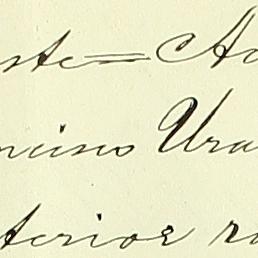 ste= Ad
ncisco Ura
terior re